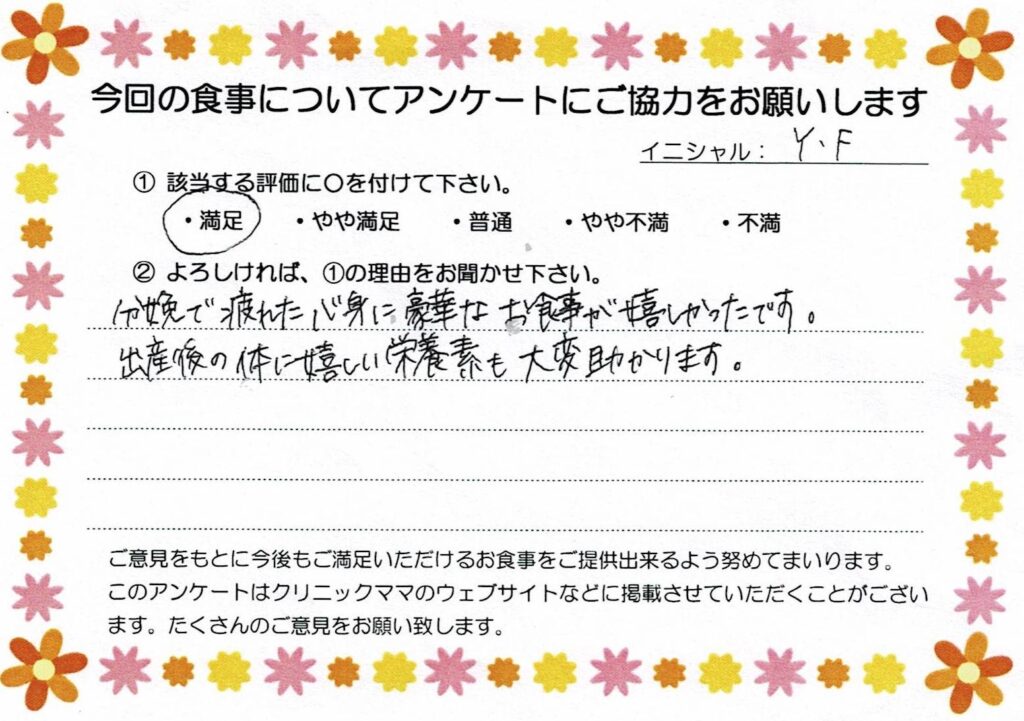 今回の食事についてアンケートにご協力をお願いします
イニシャル： Y.F
① 該当する評価に〇を付けて下さい。
・満足 ・やや満足 ・普通 ・やや不満 ・不満
② よろしければ、①の理由をお聞かせ下さい。
分娩で疲れた心身に豪華なお食事が嬉しかったです。
出産後の体に嬉しい栄養素も大変助かります。
ご意見をもとに今後もご満足いただけるお食事をご提供出来るよう努めてまいります。
このアンケートはクリニックママのウェブサイトなどに掲載させていただくことがござい
ます。たくさんのご意見をお願い致します。